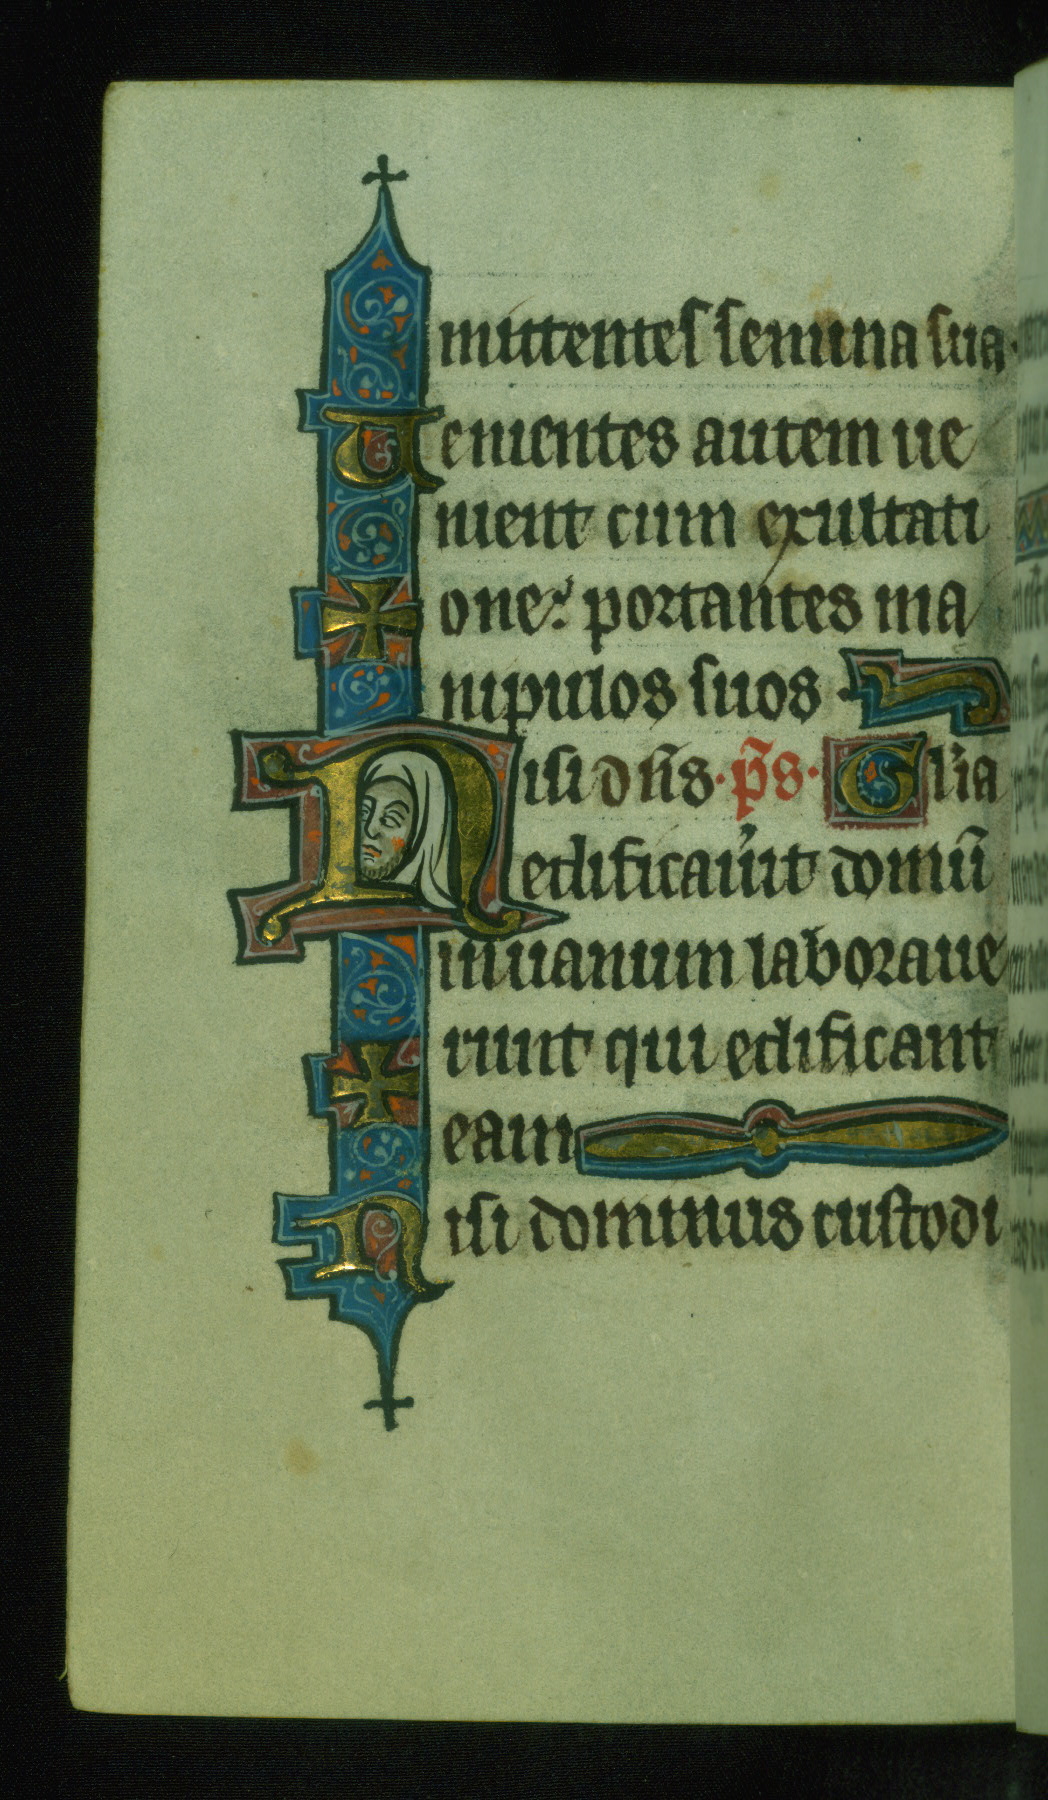 mittentes semina sua.
Uenientes autem ue
nient cum exultati
one: portantes ma
nipulos suos
Nisi dñs. p̃s. Gl'ia
edificau'it domũ
inuanum laboraue
runt qui edificant
eam
Nisi dominus custodi